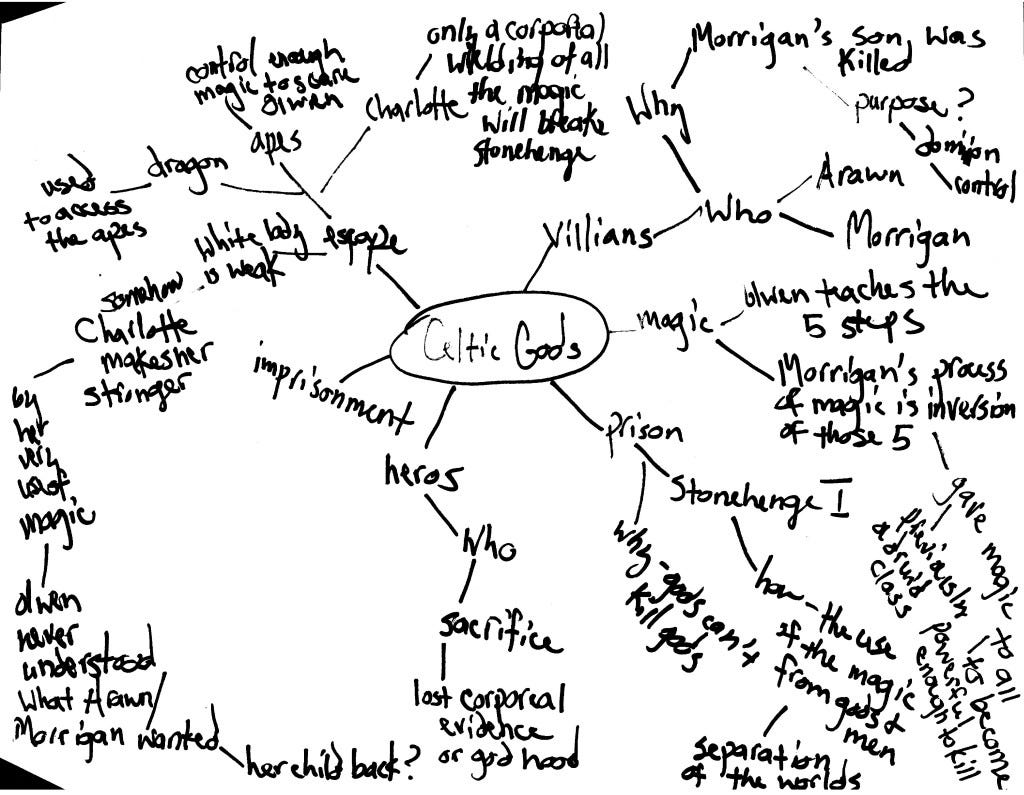 Celtic Gods
Villians
Who
Why
Morrigan's son was
killed
purpose?
control
Arawn
Morrigan
magic
Olwen teaches the
5 steps
Morrigan's process
of magic is inversion
of those 5
gave magic to all
previously
a druid
class
to become
powerful
enough to kill
prison
Stonehenge I
how - the use
of the magic
from gods &
men
separation
of the worlds
why - gods can't
kill gods
heros
Who
sacrifice
lost corporeal
evidence
or god hood
imprisonment
escape
Charlotte
only a
of all
the magic
will breake
stonehenge
apes
control enough
magic to scare
Olwen
dragon
used
to access
the apes
White lady
is weak
somehow
Charlotte
makes her
stronger
by
her
very
use of
magic
Olwen
never
understood
What Arawn
Morrigan wanted
her child back?